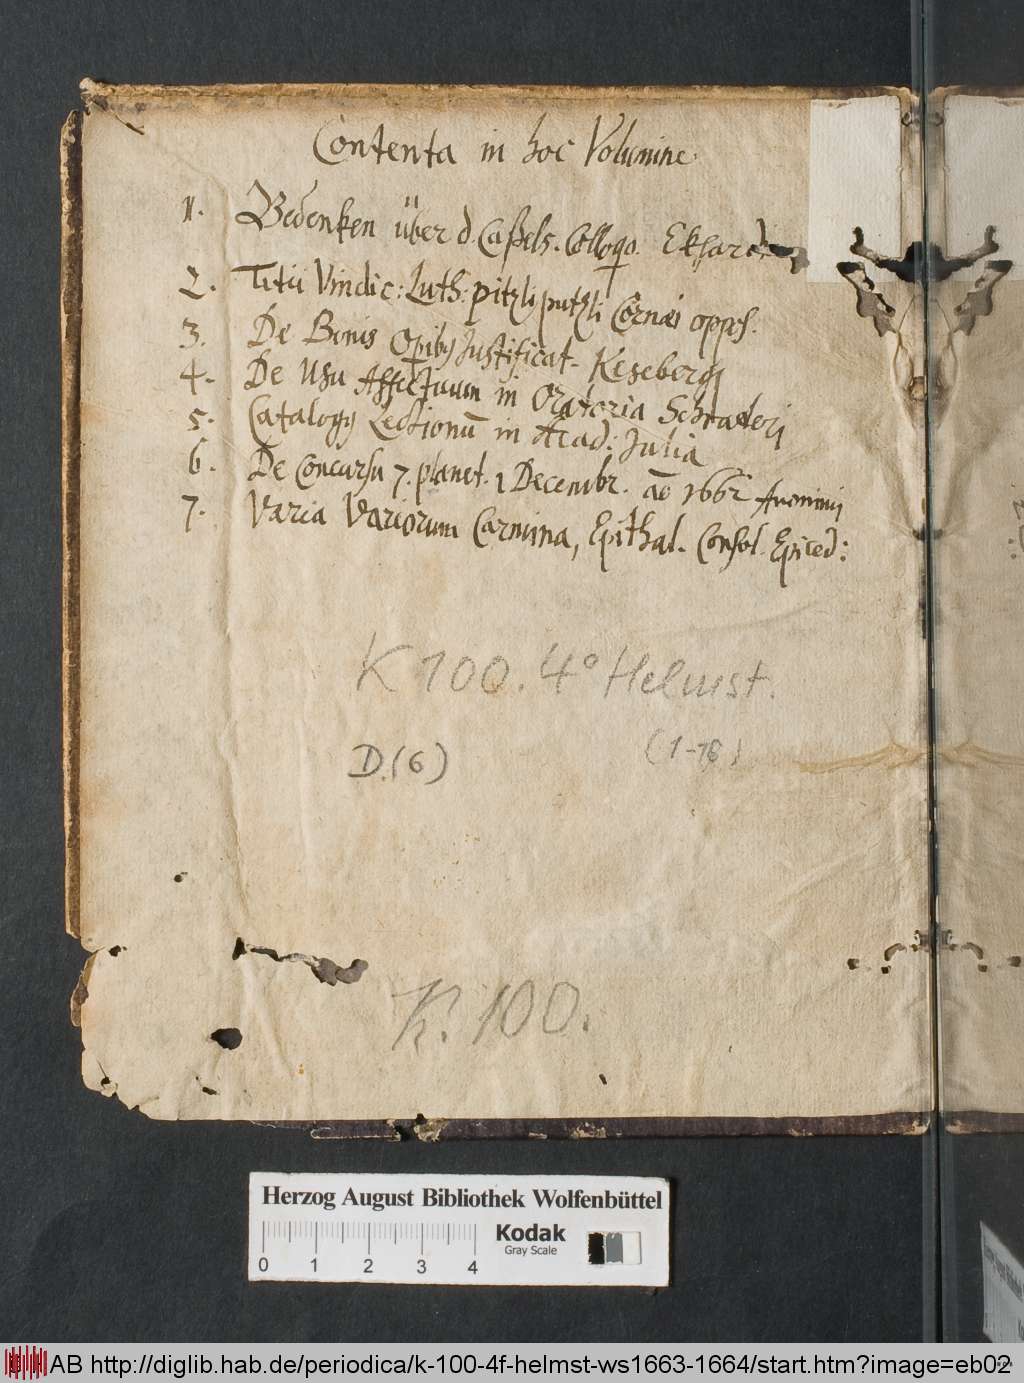 Contenta in hoc Volumine
1. Bedenken über d. Caßels. Colloqo. Ekhardi
2. Titii Vindic: Luth: pitzliputzli Cornaei oppos.
3. De Bonis Opiby Justificat. Keseberg
4. De Usu Affectuum in Oratoria Schraderi
5. Catalogy Lectionū in Acad: Julia
6. De Concursu 7. planet. 1 Decembr. ao 1662 Anonimi
7. Varia Variorum Carmina, Epithal. Consol. Epiced:
K 100. 4° Helmst.
D. (6)
(1-18)
K. 100.
Herzog August Bibliothek Wolfenbüttel
Kodak
Gray Scale
0 1 2 3 4
HAB http://diglib.hab.de/periodica/k-100-4f-helmst-ws1663-1664/start.htm?image=eb02